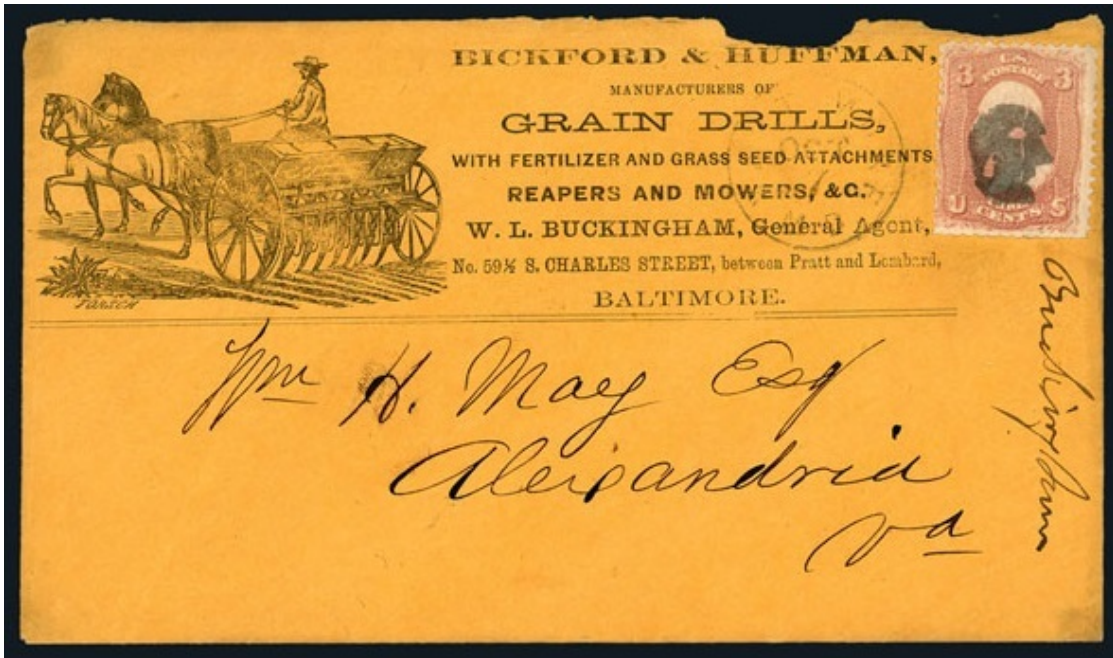 BICKFORD & HUFFMAN,
MANUFACTURERS OF
GRAIN DRILLS,
WITH FERTILIZER AND GRASS SEED ATTACHMENTS
REAPERS AND MOWERS, &C.
W. L. BUCKINGHAM, General Agent,
No. 59½ S. CHARLES STREET, between Pratt and Lombard,
BALTIMORE.
3 U.S. 3
POSTAGE
U CENTS S
OCT
MD
Wm H. May Esq
Alexandria
Va
Buckingham